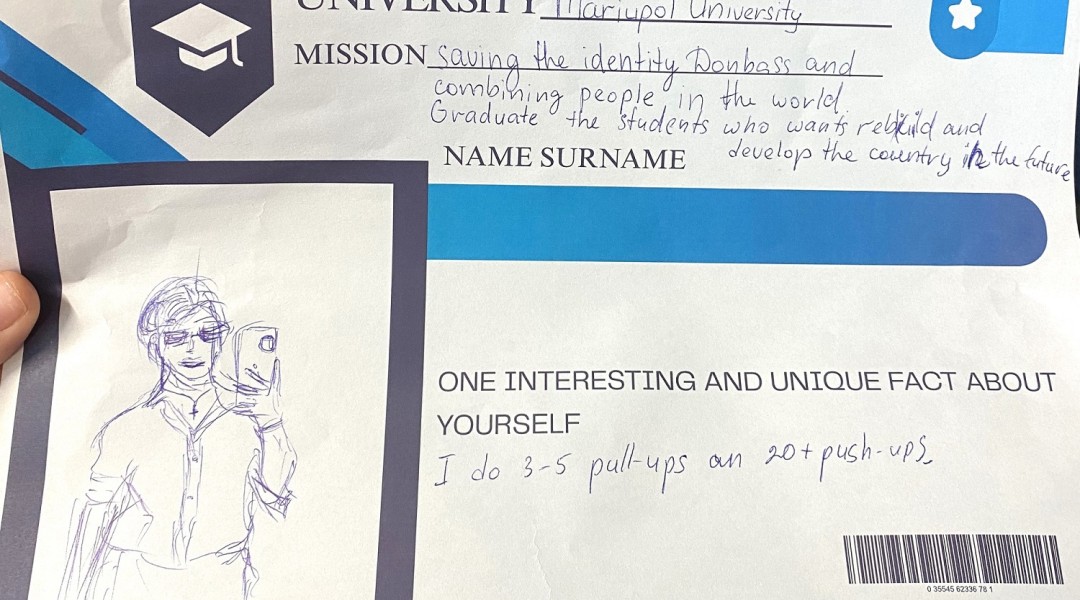 UNIVERSITY Mariupol University
MISSION saving the identity Donbass and
combining people in the world
Graduate the students who wants rebuild and
develop the country in the future
NAME SURNAME
ONE INTERESTING AND UNIQUE FACT ABOUT
YOURSELF
I do 3-5 pull-ups an 20+ push-ups
0 35545 62336 78 1